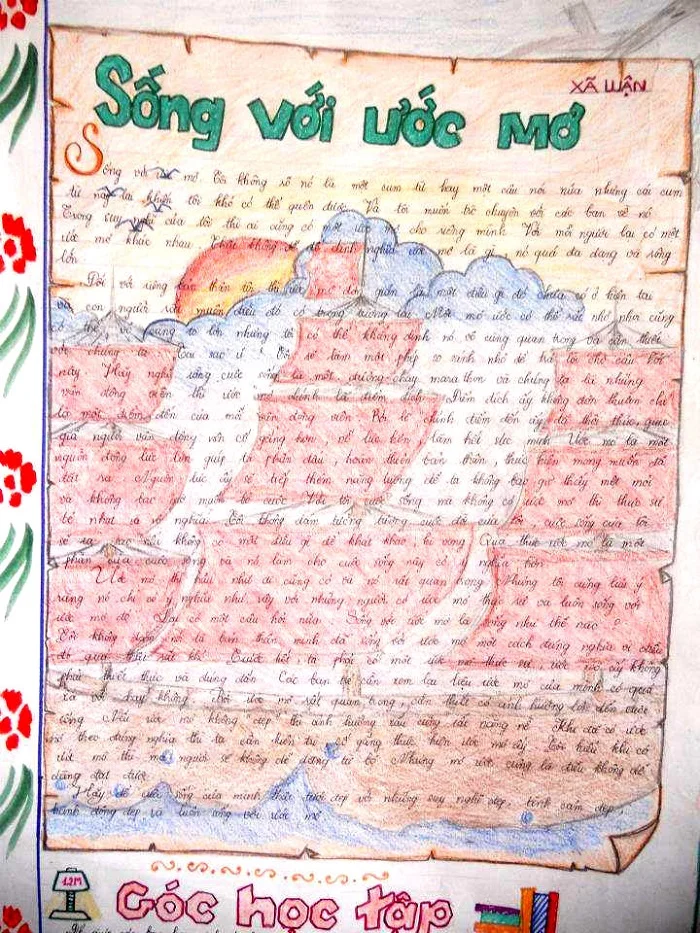 XÃ LUẬN
Sống với ước mơ
Sống với ước mơ Tôi không rõ nó là một cụm từ hay một câu nói nữa nhưng cái cụm
từ này lại khiến tôi khó có thể quên được. Và tôi muốn trò chuyện với các bạn về nó
Trong suy nghĩ của tôi thì ai cũng có một ước mơ cho riêng mình Với mỗi người lại có một
ước mơ khác nhau. không dễ để định nghĩa ước mơ là gì, nó quá đa dạng và rộng
lớn.
Đối với riêng bản thân tôi thì ước mơ đơn giản là một điều gì đó chưa có ở hiện tại
và con người ta muốn điều đó có trong tương lai Một mơ ước có thể rất nhỏ nhưng cũng
có thể vô cùng to lớn nhưng tôi có thể khẳng định nó vô cùng quan trọng và cần thiết
với chúng ta Tại sao ư ? Tôi sẽ làm một phép so sánh nhỏ để trả lời cho câu hỏi
này Hãy nghĩ rằng cuộc sống là một đường chạy marathon và chúng ta là những
vận động viên thì ước mơ chính là điểm đích Điểm đích ấy không đơn thuần chỉ
là một điểm đến của mỗi vận động viên Bởi lẽ chính điểm đến ấy đã thôi thúc, giúp
người vận động viên cố gắng hơn nỗ lực tiến lên hết sức mình Ước mơ là một
nguồn động lực lớn giúp ta phấn đấu, hoàn thiện bản thân, thực hiện mong muốn đã
đặt ra. Nguồn lực ấy sẽ tiếp thêm năng lượng để ta không bao giờ thấy mệt mỏi
và không bao giờ muốn bỏ cuộc Với tôi cuộc sống mà không có ước mơ thì thực sự
tẻ nhạt và vô nghĩa. Tôi không dám tưởng tượng cuộc đời của tôi cuộc sống của tôi
sẽ ra sao nếu không có một điều gì để khát khao hi vọng Quả thực ước mơ là một
phần của cuộc sống và nó làm cho cuộc sống này có ý nghĩa hơn
Ước mơ thì hầu như ai cũng có và nó rất quan trọng Nhưng tôi cũng lưu ý
rằng nó chỉ có ý nghĩa như vậy với những người có ước mơ thực sự và luôn sống với
ước mơ đó Lại có một câu hỏi nữa Sống với ước mơ là sống như thế nào ?
Tôi không dám nói là bản thân mình đã sống với ước mơ một cách đúng nghĩa vì điều
đó quả thực rất khó Trước hết, ta phải có một ước mơ thực sự ước mơ ấy không
phải thiết thực và đúng đắn Các bạn trẻ cần xem lại liệu ước mơ của mình có quá
xa vời hay không, bởi ước mơ rất quan trọng, cần thiết có ảnh hưởng lớn đến cuộc
sống Nếu ước mơ không đẹp thì ảnh hưởng xấu cũng rất nặng nề Khi đã có ước
mơ theo đúng nghĩa thì ta cần kiên trì cố gắng thực hiện ước mơ ấy Tôi hiểu khi có
ước mơ thì mỗi người sẽ không dễ dàng từ bỏ Nhưng mơ ước cũng là điều không dễ
dàng đạt được
Hãy để cuộc sống của mình thật tươi đẹp với những suy nghĩ đẹp tình cảm đẹp,
hành động đẹp và luôn sống với ước mơ
12M
Góc học tập